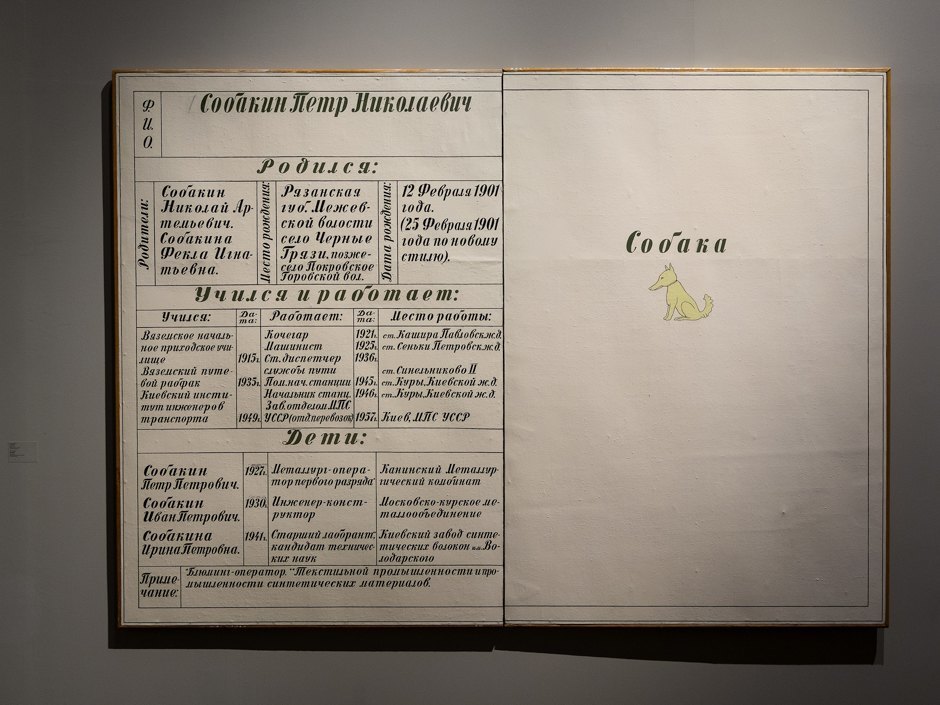 Ф.
И.
О.
Собакин Петр Николаевич
Родился:
Родители:
Собакин
Николай Ар-
тельевич.
Собакина
Фекла Игна-
тьевна.
Место рождения:
Рязанская
губ. Межев-
ской волости
село Черные
Грязи, позже-
село Покровское
Горовской вол.
Дата рождения:
12 Февраля 1901
года.
(25 Февраля 1901
года по новому
стилю).
Учился и работает:
Учился:
Да-
та:
Работает:
Да-
та:
Место работы:
Вяземское началь-
ное приходское учи-
лище
1915г.
Вяземский путе-
вой рабфак
1935г.
Киевский инсти-
тут инженеров
транспорта
1949г.
Кочегар
1921г.
ст. Кашира Павловск.ж.д.
Машинист
1925г.
ст. Сеньки Петровск.ж.д.
Ст. диспетчер
1936г.
службы пути
ст. Синельниково II
Пом.нач. станции
1945г.
ст. Куры, Киевской ж.д.
Начальник станц.
1946г.
ст. Куры, Киевской ж.д.
Зав. отделом МПС
УССР (отд.перевозок)
1957г.
Киев, МПС УССР
Дети:
Собакин
Петр Петрович.
1927г.
Металлург-опера-
тор первого разряда*
Канинский Металлур-
гический комбинат
Собакин
Иван Петрович.
1930.
Инженер-конст-
руктор
Московско-курское ме-
таллообъединение
Собакина
Ирина Петровна.
1941г.
Старший лаборант.
кандидат техничес-
ких наук
Киевский завод синте-
тических волокон им. Во-
лодарского
Приме-
чание:
*Блюминг-оператор. **Текстильной промышленности и про-
мышленности синтетических материалов.
Собака